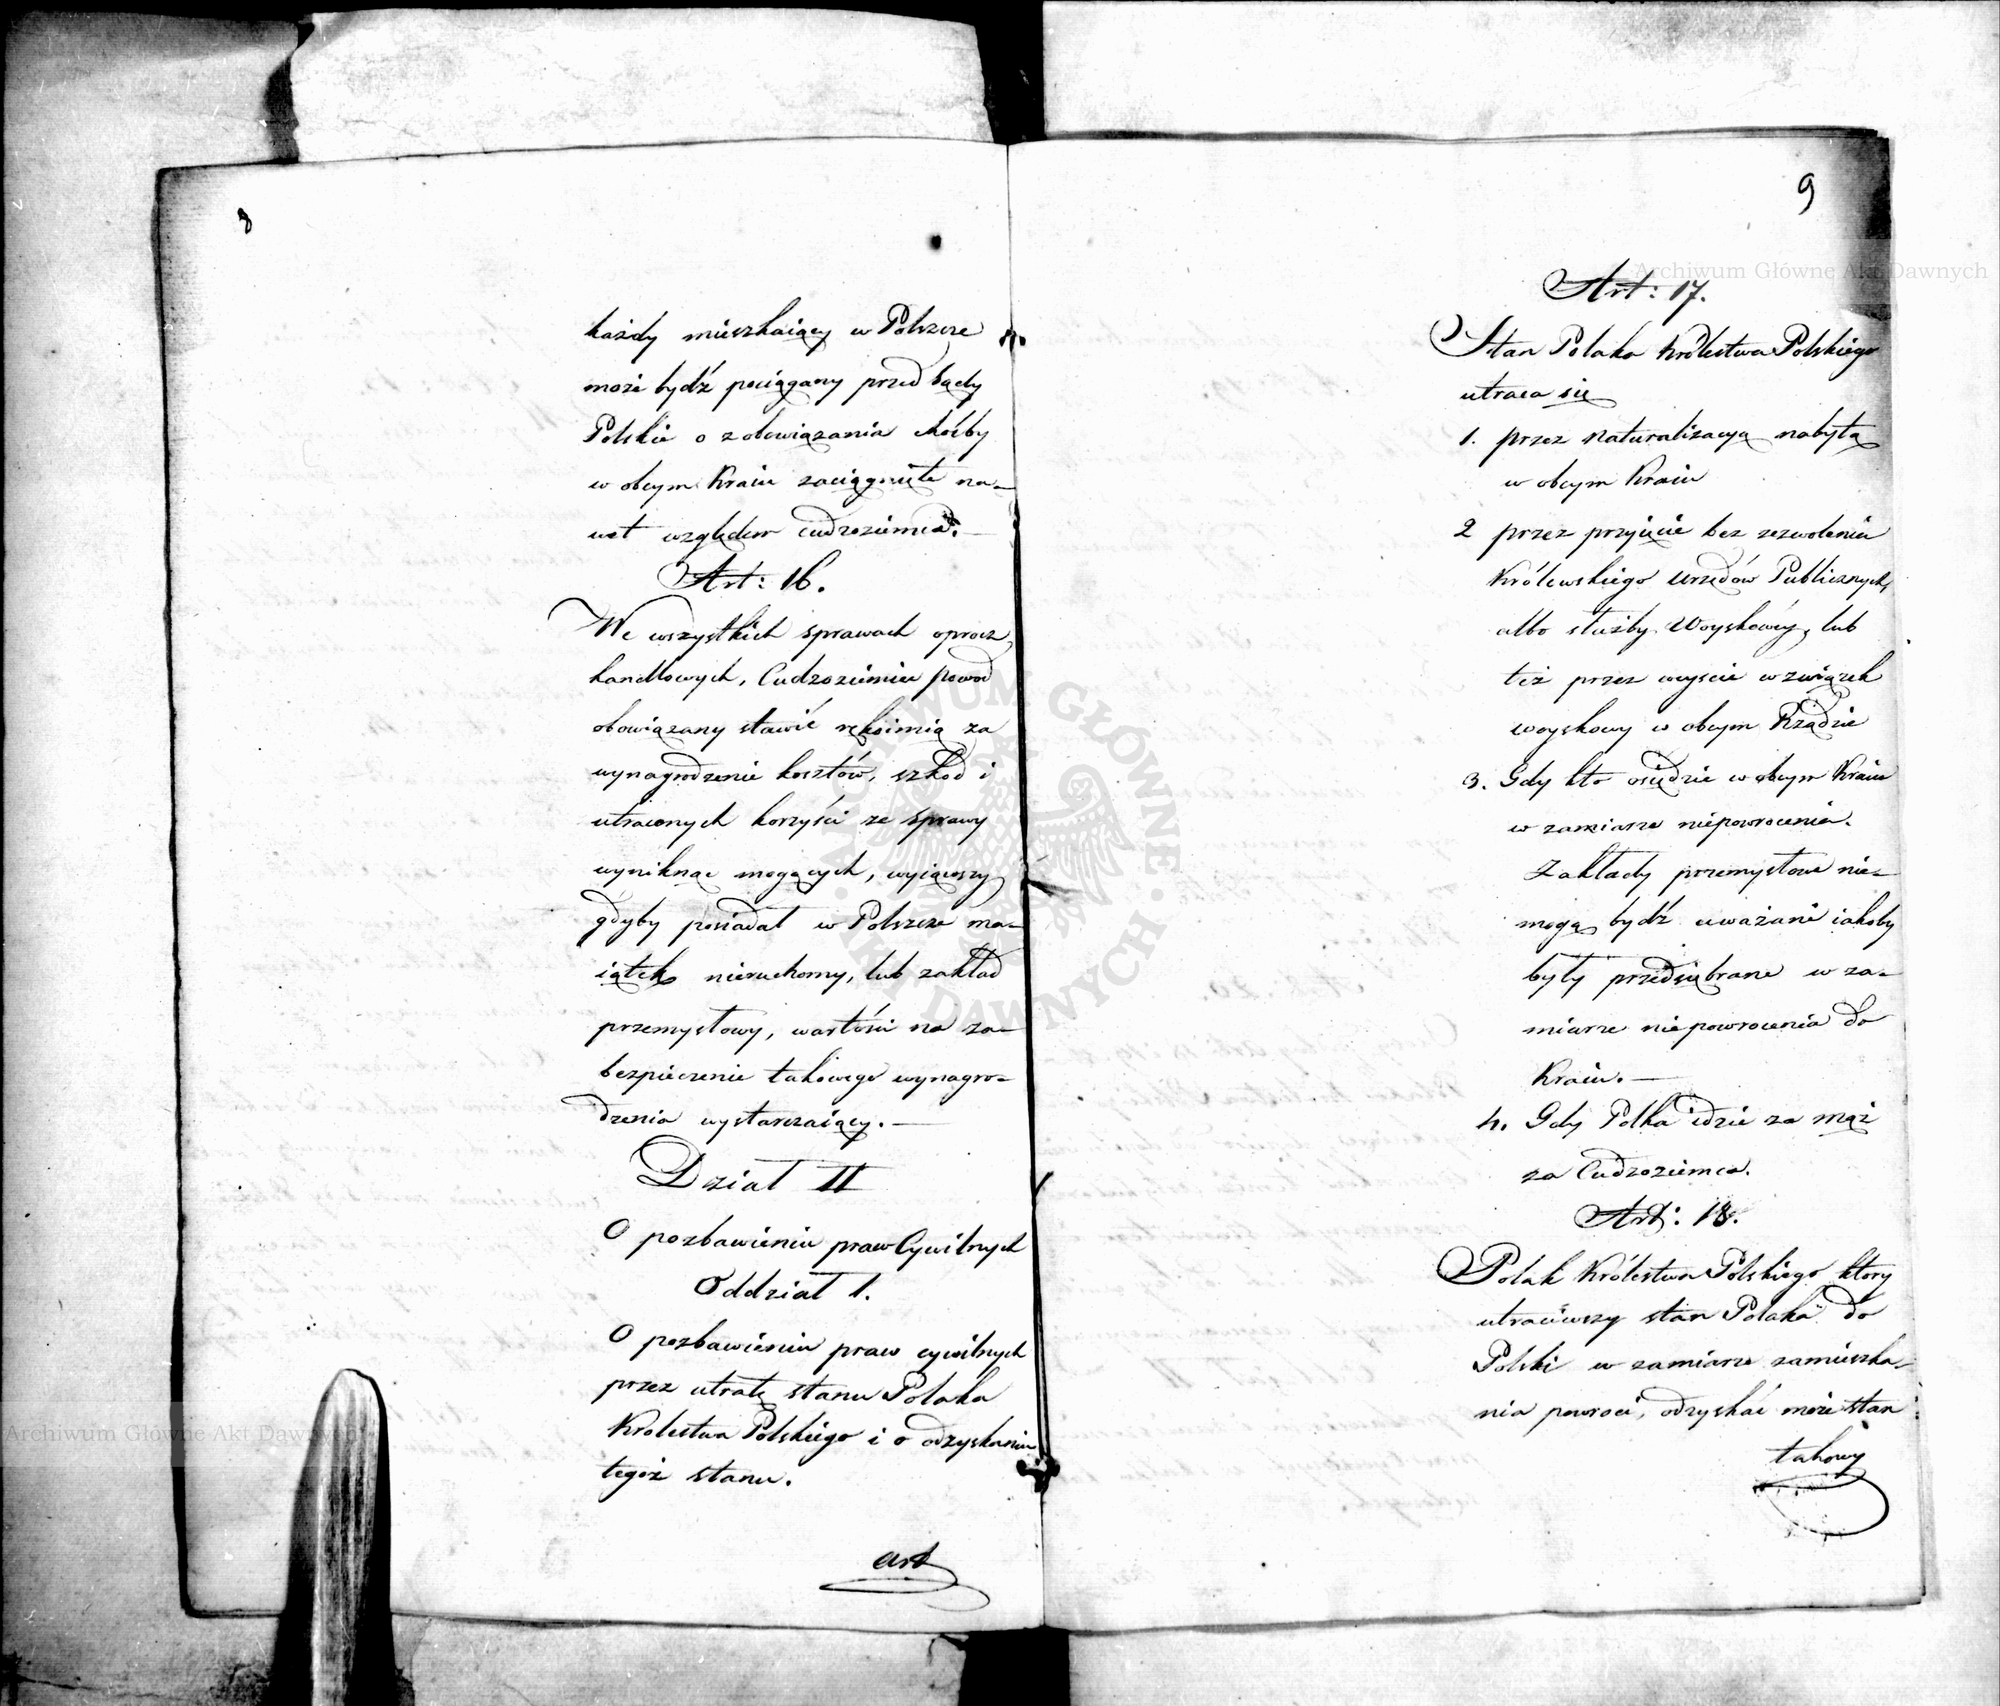 8
każdy mieszkaiący w Polszcze
może bydź pociągany przed Sądy
Polskie o zobowiązania choćby
w obcym Kraiu zaciągnięte na-
wet względem cudzoziemca.
Art: 16.
We wszystkich sprawach oprocz
handlowych, Cudzoziemiec powod
obowiązany stawić rękoimią za
wynagrodzenie kosztów, szkod i
utraconych korzyści ze sprawy
wyniknąć mogących, wyiąwszy
gdyby posiadał w Polszcze ma-
iątek nieruchomy, lub zakład
przemysłowy, wartości na za-
bezpieczenie takowego wynagro-
dzenia wystarczaiący.
Dział II
O pozbawieniu praw Cywilnych
Oddział 1.
O pozbawieniu praw cywilnych
przez utratę stanu Polaka
Krolestwa Polskiego i o odzyskaniu
tegoż stanu.
art
9
Art: 17.
Stan Polaka Królestwa Polskiego
utraca się
1. przez naturalizacyą nabytą
w obcym Kraiu
2 przez przyięcie bez zezwolenia
Królewskiego Urzędów Publicznych,
albo służby Woyskowéy, lub
też przez weyście w związek
woyskowy w obcym Rządzie
3. Gdy kto osiędzie w obcym Kraiu
w zamiarze niepowrocenia.
Zakłady przemysłowe nie-
mogą bydź uważane iakoby
były przedsiębrane w za-
miarze niepowrocenia do
Kraiu.
4. Gdy Polka idzie za mąż
za Cudzoziemca.
Art: 18.
Polak Królestwa Polskiego ktory
utraciwszy stan Polaka do
Polski w zamiarze zamieszka-
nia powroci, odzyskać może stan
takowy
Archiwum Główne Akt Dawnych
Archiwum Główne Akt Dawnych
ARCHIWUM GŁÓWNE AKT DAWNYCH